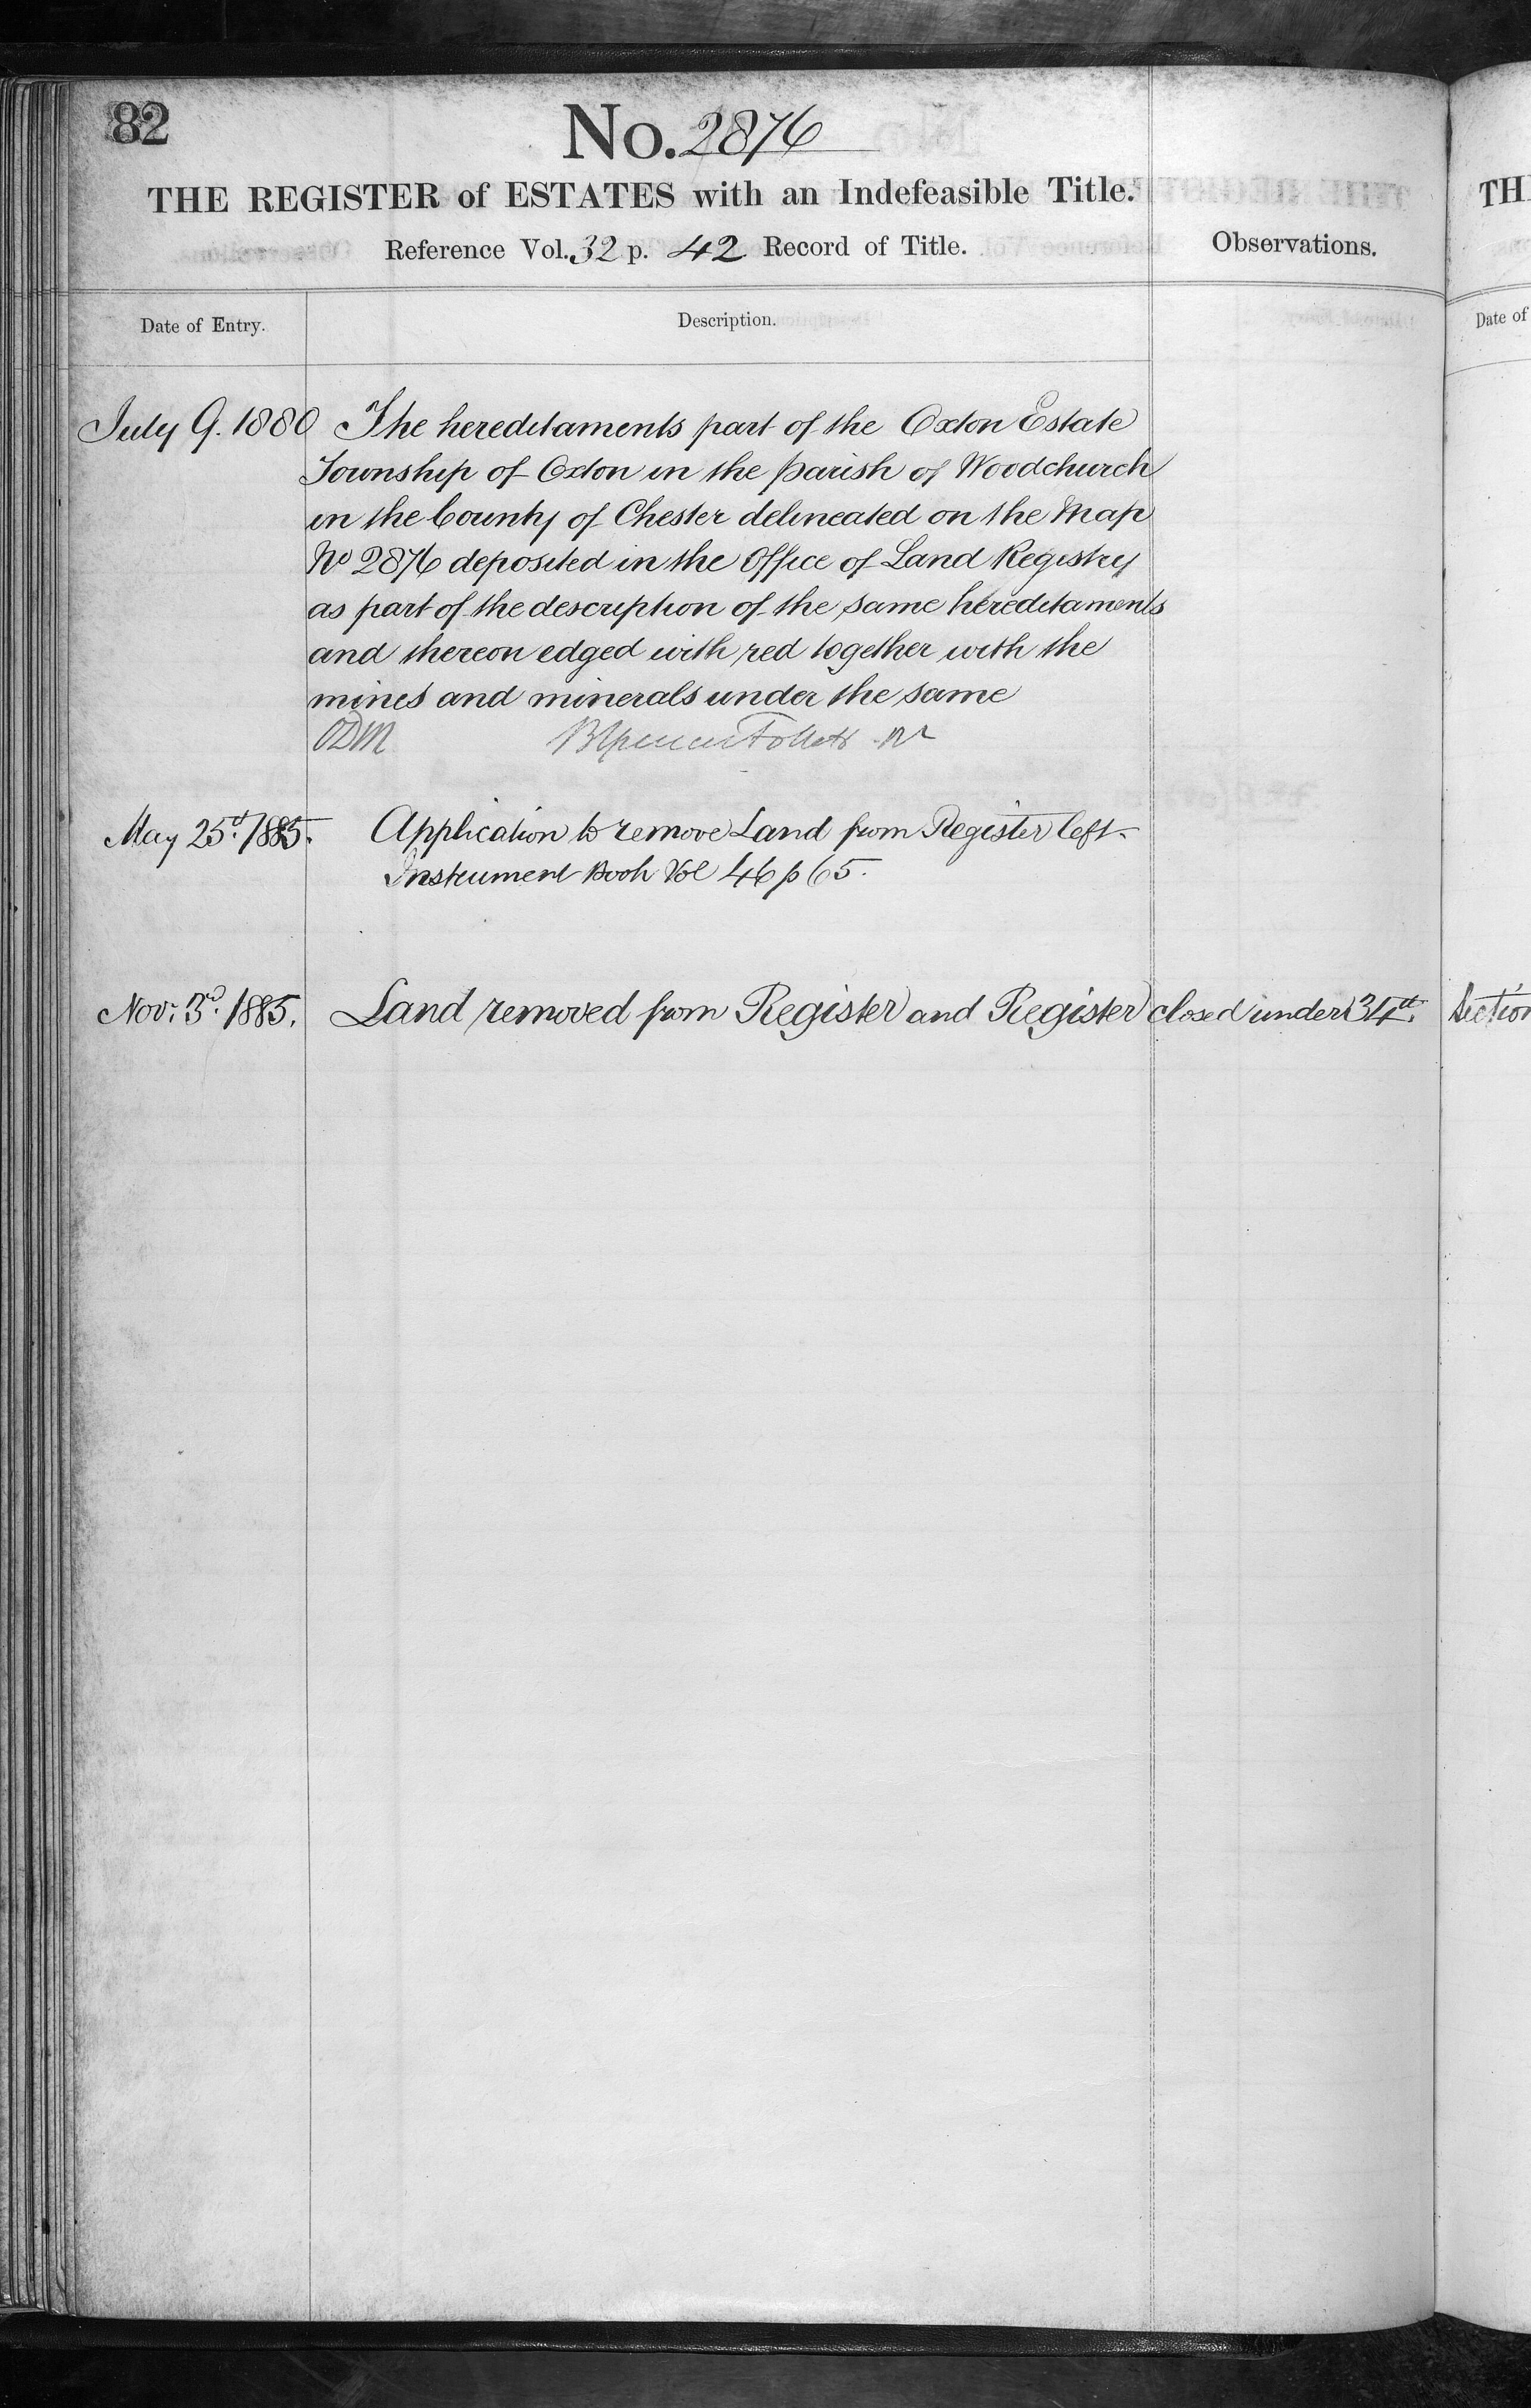 82
No. 2876
THE REGISTER of ESTATES with an Indefeasible Title.
Reference Vol. 32 p. 42 Record of Title.
Observations.
Date of Entry.
Description.
July 9. 1880 The hereditaments part of the Oxton Estate
Township of Oxton in the parish of Woodchurch
in the County of Chester delineated on the Map
No 2876 deposited in the Office of Land Registry
as part of the description of the same hereditaments
and thereon edged with red together with the
mines and minerals under the same
Follett
May 25th. 1885. Application to remove Land from Register left.
Instrument Book Vol 46 p 65.
Nov. 3rd. 1885. Land removed from Register and Register closed under 34th. Section
TH
Date of